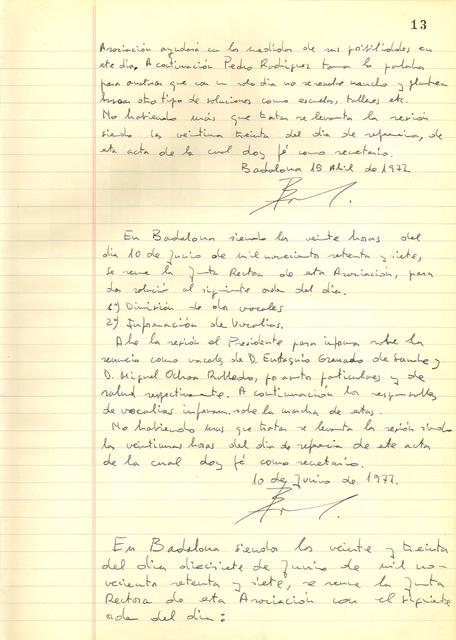 13
Asociación ayudará en la medidas de sus posibilidades en
este día. A continuación Pedro Rodríguez toma la palabra
para que con un solo día no se resuelve mucho y
otro tipo de soluciones como escuelas, talleres etc.
No habiendo más que tratar se levanta la sesión
siendo las veintiuna treinta del día de referencia, de
esta acta de la cual doy fé como secretario.
Badalona 15 Abil de 1977
En Badalona siendo las veinte horas del
día 10 de Junio de mil novecientos setenta y siete,
se reune la Junta Rectora de esta Asociación, para
dar solució al siguiente orden del día.
1º) Dimisión de dos vocales
2º) Información de Vocalias.
Abre la sesión el Presidente para informa sobre la
renuncia como vocales de D. Eutaquio Granado de Sande y
D. Miguel Ochoa Rulledo, por particulares y de
salud respectivamente. A continuación los responsables
de vocalias informan sobre la marcha de estas.
No habiendo mas que tratar se levanta la sesión siendo
las veintiunas horas del día de referencia de este acta
de la cual doy fé como secretario.
10 de Junio de 1977.
En Badalona siendo las veinte y treinta
del dia diecisiete de Junio de mil no-
vecientos setenta y siete, se reune la Junta
Rectora de esta Asociación con el siguiente
orden del dia: